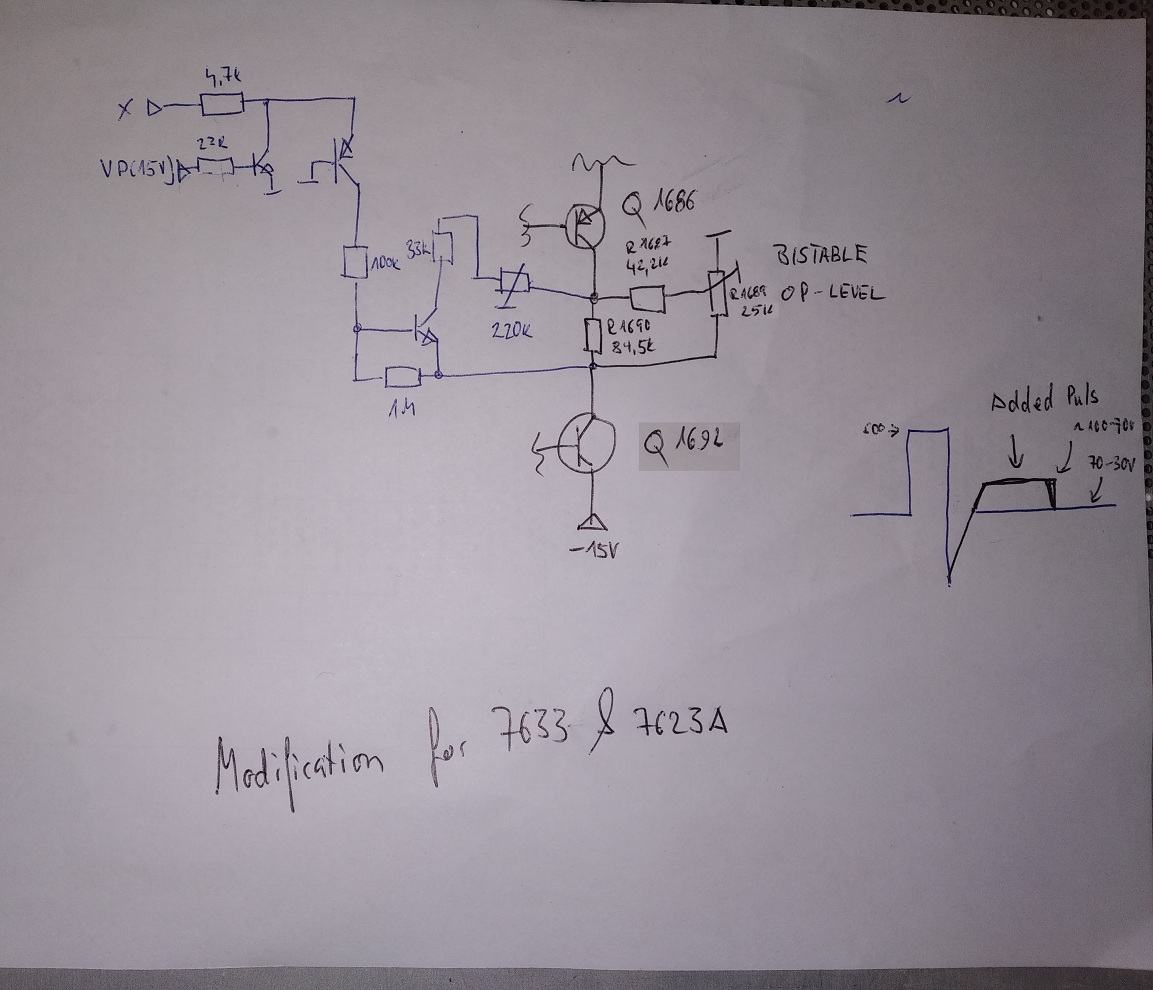 4,7k
X
22k
VP(15V)
100k
33k
1M
220k
Q 1686
R1687
42,2k
R1689
25k
BISTABLE
OP-LEVEL
R1690
84,5k
Q 1692
-15V
Added Puls
70-30V
Modification for 7633 & 7623A